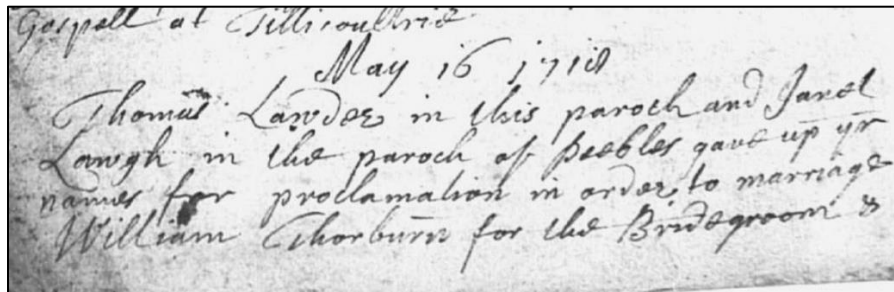 Gospell at Tillicoultrie
May 16 1718
Thomas Lawder in this paroch and Janet
Lawgh in the paroch of Peebles gave up yr
names for proclamation in order to marriage
William Thorburn for the Bridegroom &